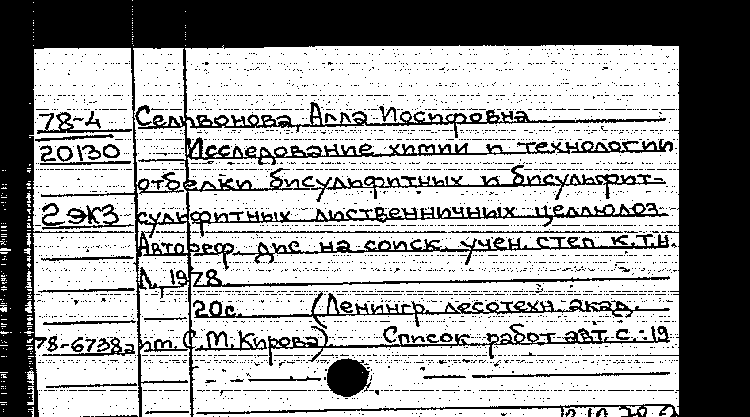 78-4 Селивонова, Алла Иосифовна
20130 Исследование химии и технологии
отбелки бисульфитных и бисульфит-
2 экз сульфитных лиственничных целлюлоз.
Автореф. дис. на соиск. учен. степ. к.т.н.
Л., 1978.
20с. (Ленингр. лесотехн. акад.
78-6738а им. С.М. Кирова) Список работ авт. с.:19